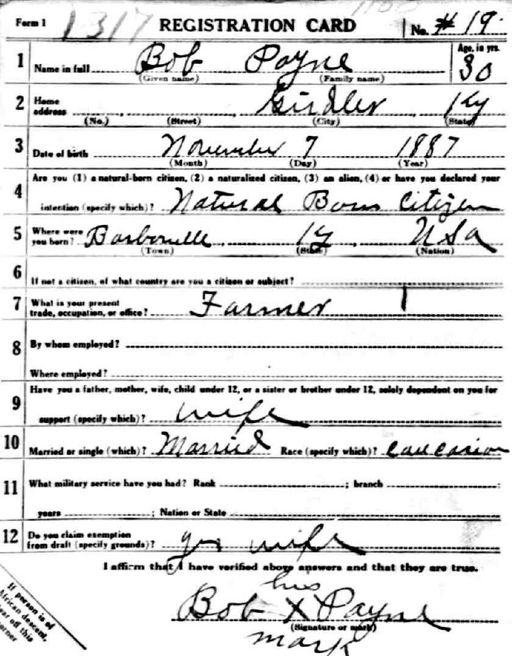 Form 1 1317 REGISTRATION CARD No. # 19.
1 Name in full Bob Payne Age, in yrs. 30
(Given name) (Family name)
2 Home address Girdler Ky
(No.) (Street) (City) (State)
3 Date of birth November 7 1887
(Month) (Day) (Year)
4 Are you (1) a natural-born citizen, (2) a naturalized citizen, (3) an alien, (4) or have you declared your
intention (specify which)? Natural Born Citizen
5 Where were you born? Barbourville Ky USA
(Town) (State) (Nation)
6 If not a citizen, of what country are you a citizen or subject?
7 What is your present trade, occupation, or office? Farmer
8 By whom employed?
Where employed?
9 Have you a father, mother, wife, child under 12, or a sister or brother under 12, solely dependent on you for
support (specify which)? wife
10 Married or single (which)? Married Race (specify which)? Caucasion
11 What military service have you had? Rank ; branch ;
years ; Nation or State
12 Do you claim exemption from draft (specify grounds)? yes wife
I affirm that I have verified above answers and that they are true.
his
Bob X Payne
(Signature or mark)
mark
If person is of
African descent,
tear off this
corner